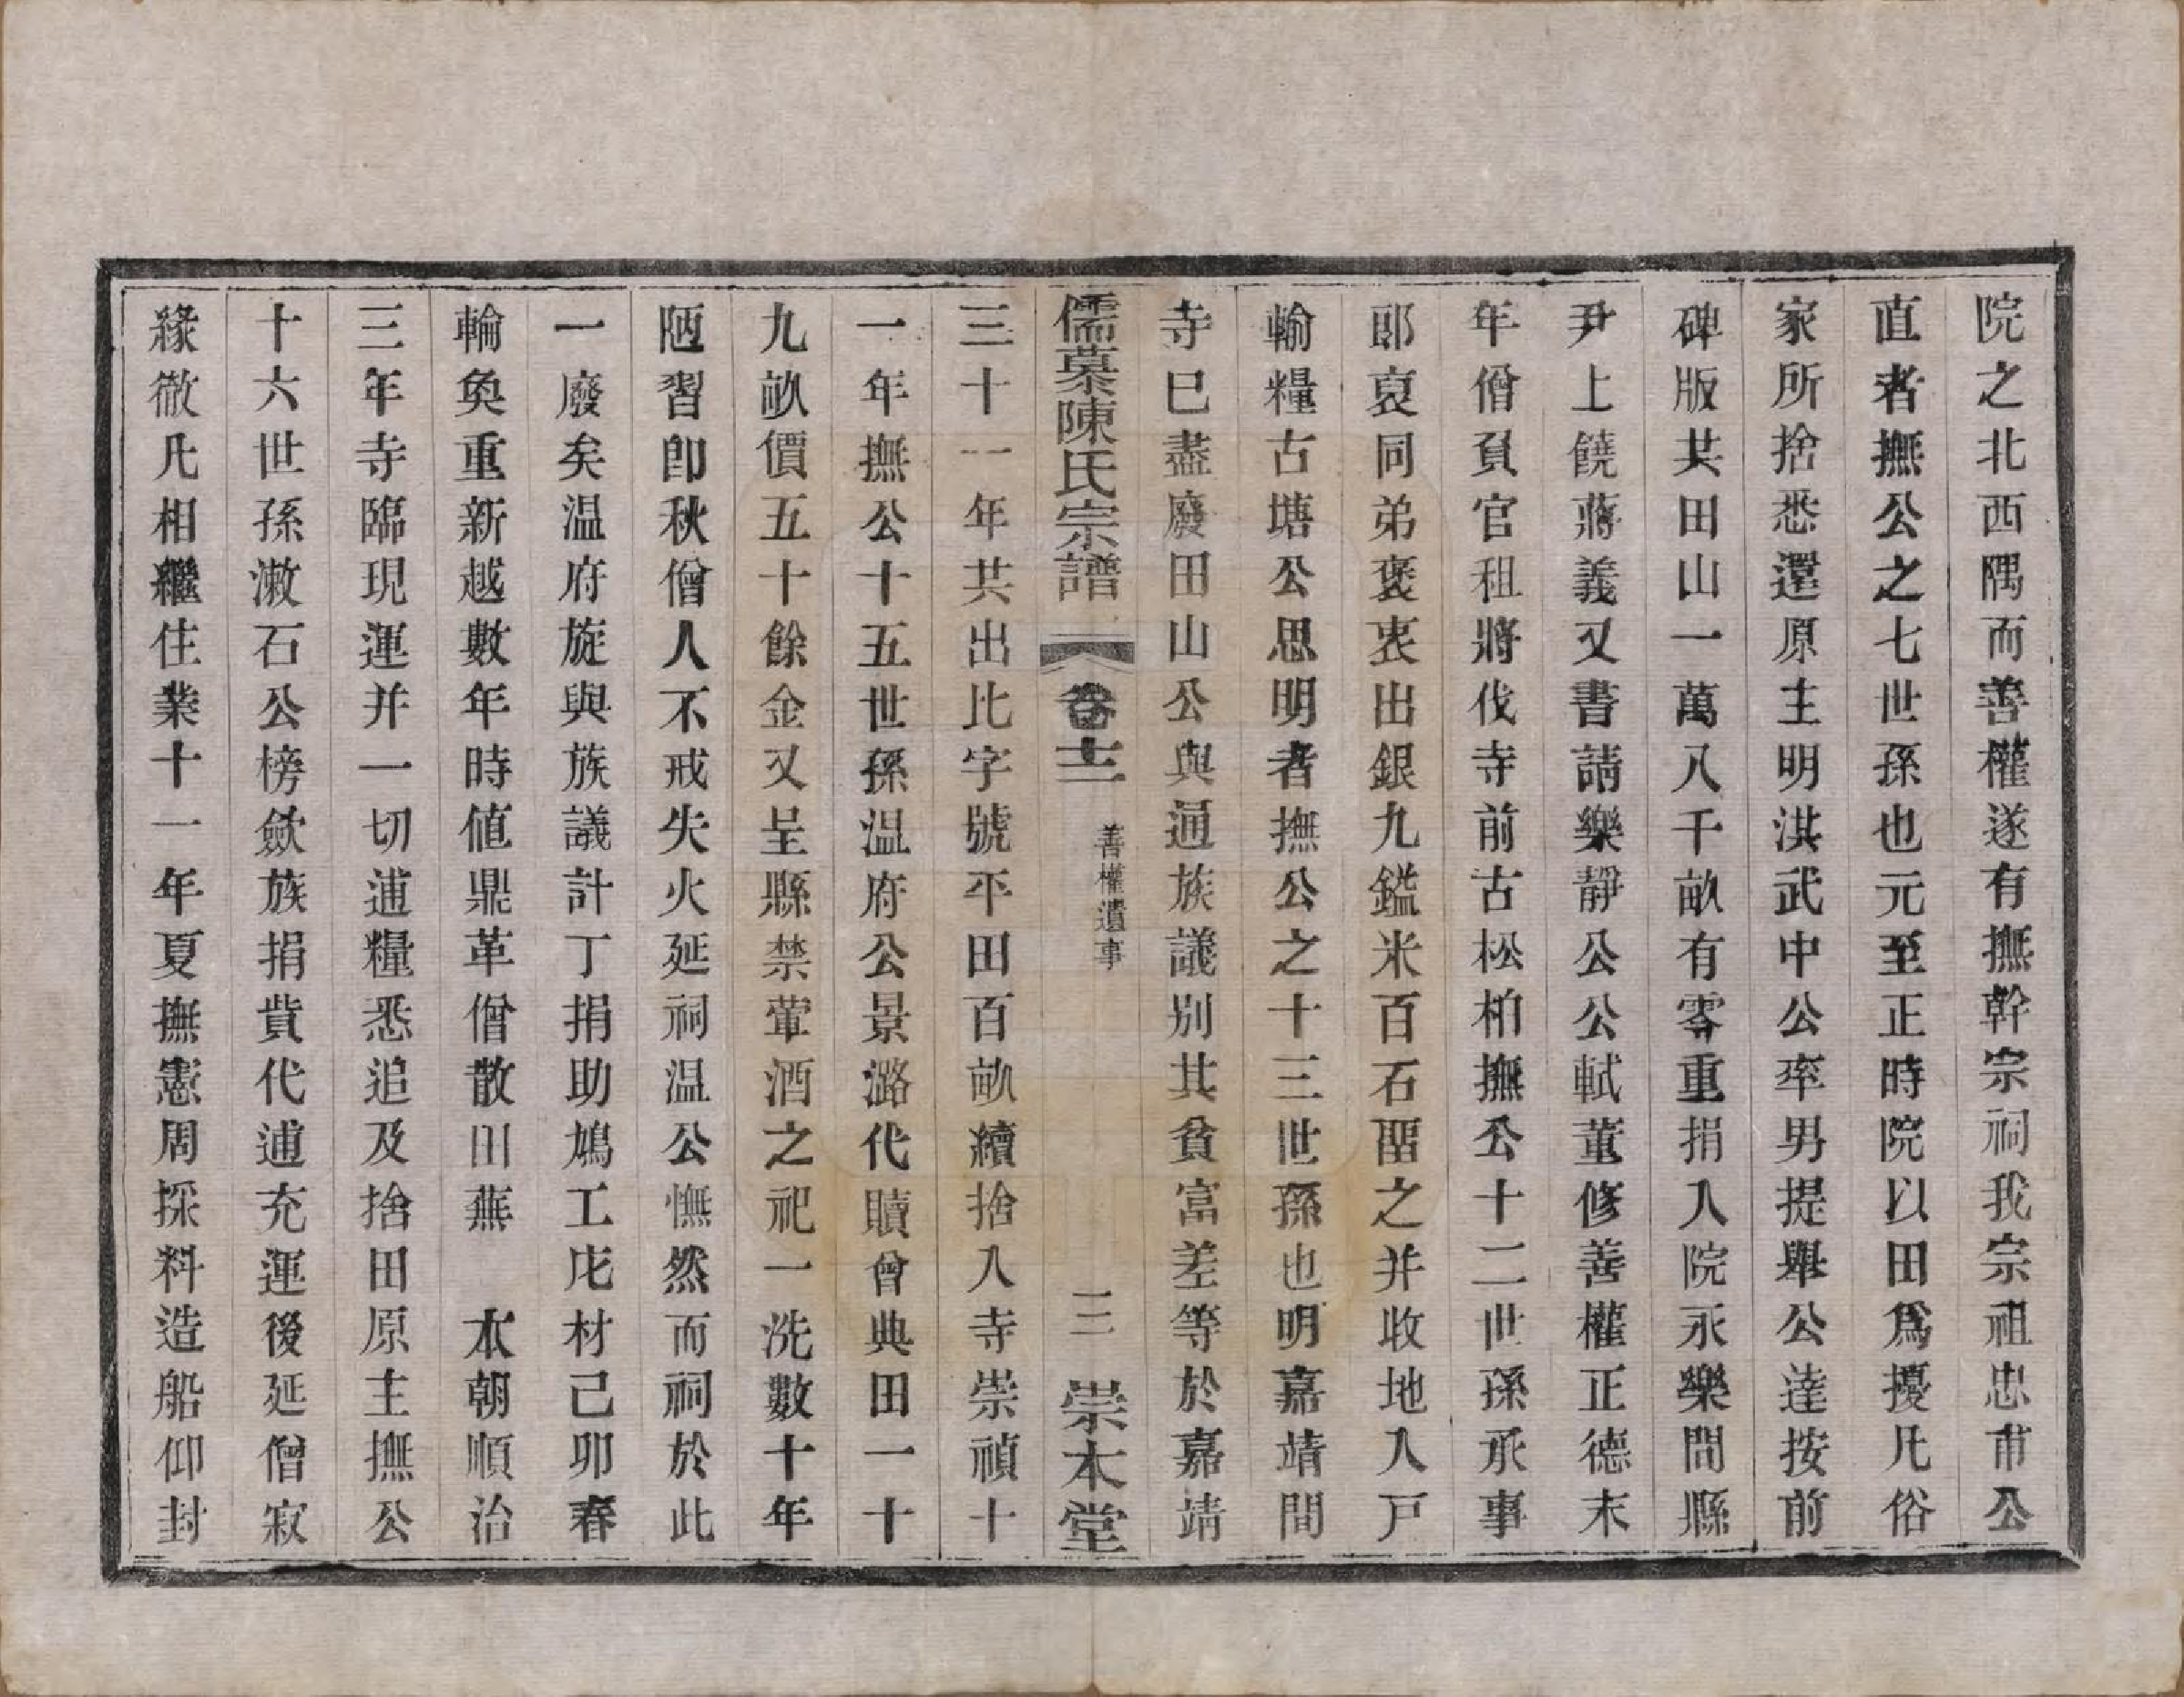 院之北西隅而善權遂有撫幹宗祠我宗祖忠甫公
直者撫公之七世孫也元至正時院以田爲擾凡俗
家所捨悉還原主明洪武中公率男提舉公達按前
碑版共田山一萬八千畝有零重捐入院永樂間縣
尹上饒蔣義又書請樂靜公公軾董修善權正德末
年僧負官租將伐寺前古松柏撫公十二世孫承事
郎裒同弟褒衷出銀九鎰米百石畱之并收地入戸
輸糧古塘公思明者撫公之十三世孫也明嘉靖間
寺巳盡廢田山公與通族議别其貧富差等於嘉靖
儒慕陳氏宗譜 卷十二 善權遺事 三 崇本堂
三十一年共出比字號平田百畝續捨入寺崇禎十
一年撫公十五世孫温府公景潞代贖曾典田一十
九畝價五十餘金又呈縣禁葷酒之祀一洗數十年
陋習卽秋僧人不戒失火延祠温公憮然而祠於此
一廢矣温府旋與族議計丁捐助鳩工庀材己卯春
輪奐重新越數年時値鼎革僧散田蕪　本朝順治
三年寺臨現運并一切逋糧悉追及捨田原主撫公
十六世孫漱石公榜歛族捐貲代逋充運後延僧寂
緣徹凡相繼住業十一年夏撫憲周採料造船仰封